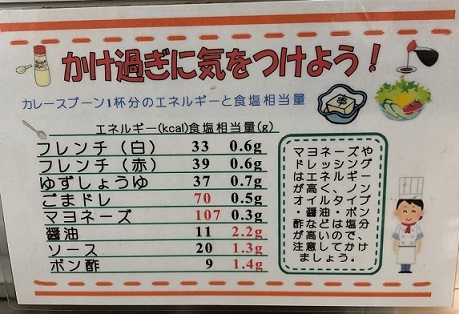 かけ過ぎに気をつけよう！
カレースプーン1杯分のエネルギーと食塩相当量
エネルギー(kcal)食塩相当量(g)
フレンチ（白） 33 0.6g
フレンチ（赤） 39 0.6g
ゆずしょうゆ 37 0.7g
ごまドレ 70 0.5g
マヨネーズ 107 0.3g
醤油 11 2.2g
ソース 20 1.3g
ポン酢 9 1.4g
マヨネーズや
ドレッシング
はエネルギー
が高く、ノン
オイルタイプ
・醤油・ポン
酢などは塩分
が高いので、
注意してかけ
ましょう。